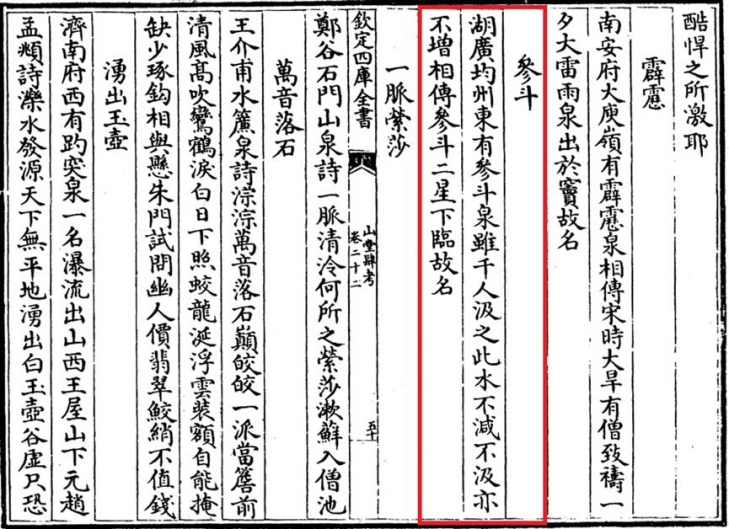 酷悍之所激耶
霹靂
南安府大庾嶺有霹靂泉相傳宋時大旱有僧致禱一
夕大雷雨泉出於竇故名
參斗
湖廣均州東有參斗泉雖千人汲之此水不減不汲亦
不增相傳參斗二星下臨故名
一脈縈莎
欽定四庫全書
山堂肆考
卷二十二
五十
鄭谷石門山泉詩一脈清泠何所之縈莎漱蘚入僧池
萬音落石
王介甫水簾泉詩淙淙萬音落石巔皎皎一派當簷前
清風高吹鸞鶴淚白日下照蛟龍涎浮雲裝額自能掩
缺少琢鈎相與懸朱門試問幽人價翡翠鮫綃不值錢
湧出玉壺
濟南府西有趵突泉一名瀑流出山西王屋山下元趙
孟頫詩濼水發源天下無平地湧出白玉壺谷虛只恐